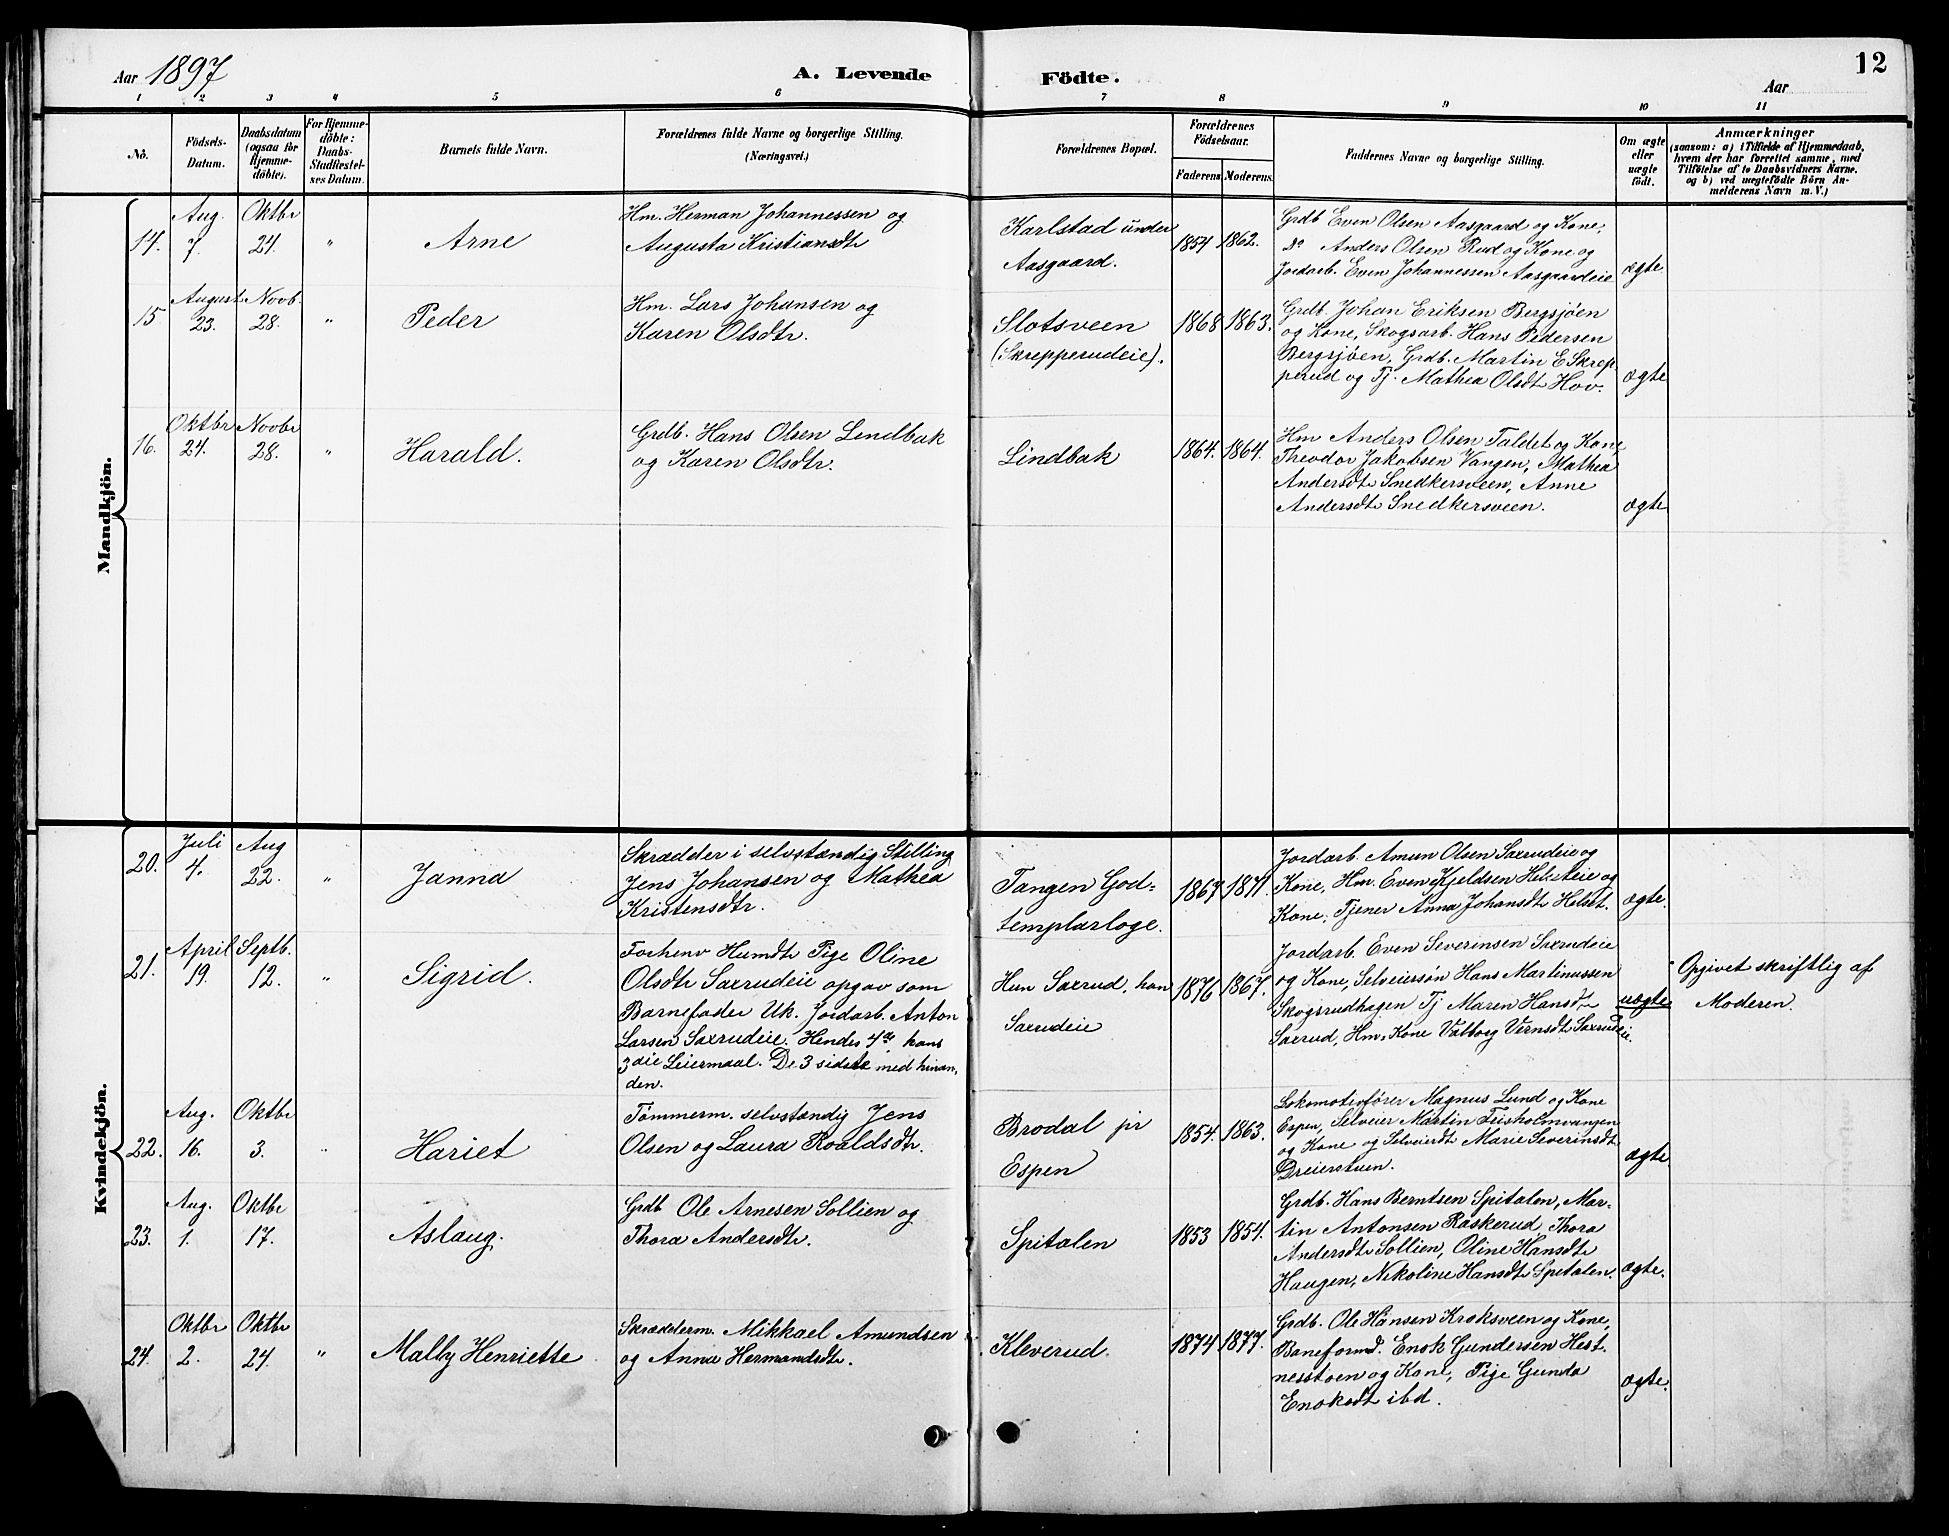 Aar 1897
A. Levende
Födte.
Aar
12
1 2 3 4 5 6 7 8 9 10 11
No.
Födsels-
Datum.
Daabsdatum
(ogsaa för
Hjemme-
döbte).
For Hjemme-
döbte:
Daabs-
Stadfæstel-
ses Datum.
Barnets fulde Navn.
Forældrenes fulde Navne og borgerlige Stilling.
(Næringsvei.)
Forældrenes Bopæl.
Forældrenes
Födselsaar.
Faderens. Moderens.
Faddernes Navne og borgerlige Stilling.
Om ægte
eller
uægte
födt.
Anmærkninger
(saasom: a) i Tilfælde af Hjemmedaab,
hvem der har forrettet samme, med
Tilföielse af to Daabsvidners Navne.
og b) ved uægtefödte Börn An-
melderens Navn m. V.)
Mandkjön.
14.
Aug.
7.
Oktbr
24.
"
Arne
Hm. Herman Johannessen og
Augusta Kristiansdtr
Karlstad under
Aasgaard.
1854
1862.
Grdb Even Olsen Aasgaard og Kone,
Do Anders Olsen Rud og Kone og
Jordarb. Even Johannessen Aasgaardeie
ægte.
15
August
23.
Novb.
28.
"
Peder
Hm. Lars Johansen og
Karen Olsdtr.
Slotsveen
(Skrepperudeie).
1868
1863.
Grdb. Johan Eriksen Bergsjøen
og Kone, Skogsarb. Hans Pedersen
Bergsjøen, Grdb. Martin E Skrep-
perud og Tj. Mathea Olsdtr Hov.
ægte
16.
Oktbr
24.
Novbr
28.
"
Harald.
Grdb. Hans Olsen Lindbak
og Karen Olsdtr.
Lindbak
1864.
1864.
Hm Anders Olsen Taldet og Kone,
Theodor Jakobsen Vangen, Mathea
Andersdtr Snedkersveen, Anne
Andersdtr Snedkersveen.
ægte
Kvindekjön.
20.
Juli
4.
Aug
22.
"
Janna
Skrædder i selvstændig Stilling
Jens Johansen og Mathea
Kristensdtr.
Tangen God-
templarloge.
1867
1871.
Jordarb. Amun Olsen Saxrudeie og
Kone, Hm. Even Kjeldsen Helseteie og
Kone, Tjener Anna Johansdtr Helset.
ægte.
21.
April
19.
Septb.
12.
"
Sigrid.
Forhenv Husmdtr Pige Oline
Olsdtr Saxrudeie opgav som
Barnefader Uk. Jordarb. Anton
Larsen Saxrudeie. Hendes 4de hans
3die Leiermaal. De 3 sidste med hinan-
den.
Hun Saxrud, han
Saxrudeie
1876
1867.
Jordarb. Even Severinsen Saxrudeie
og Kone, Selveiersøn Hans Martinussen
Skogsrudhagen Tj Maren Hansdtr
Saxrud, Hm. Kone Valborg Vernsdtr Saxrudeie.
uægte
Opgivet skriftlig af
Moderen.
22.
Aug.
16.
Oktbr
3.
"
Hariet
Tømmerm. selvstændig Jens
Olsen og Laura Roaldsdtr.
Brodal pr
Espen
1854.
1863.
Lokomotivfører Magnus Lund og Kone
Espen, Selveier Martin Feisholmvangen
og Kone og Selveierdtr Marie Severinsdtr
Dreierstuen.
ægte
23.
Aug.
1.
Oktbr
17.
Aslaug.
Grdb Ole Arnesen Sollien og
Thora Andersdtr.
Spitalen
1853
1854.
Grdb. Hans Berntsen Spitalen, Mar-
tin Antonsen Raskerud, Thora
Andersdtr Sollien, Oline Hansdtr
Haugen, Nikoline Hansdtr Spitalen.
ægte.
24.
Oktbr
2.
Oktbr
24.
"
Mally Henriette
Skrædderm. Mikkael Amundsen
og Anna Hermandsdtr.
Kleverud.
1874
1877.
Grdb. Ole Hansen Kroksveen og Kone,
Baneformd. Enok Gundersen Hest-
nesstoen og Kone, Pige Gunda
Enoksdtr ibd.
ægte.